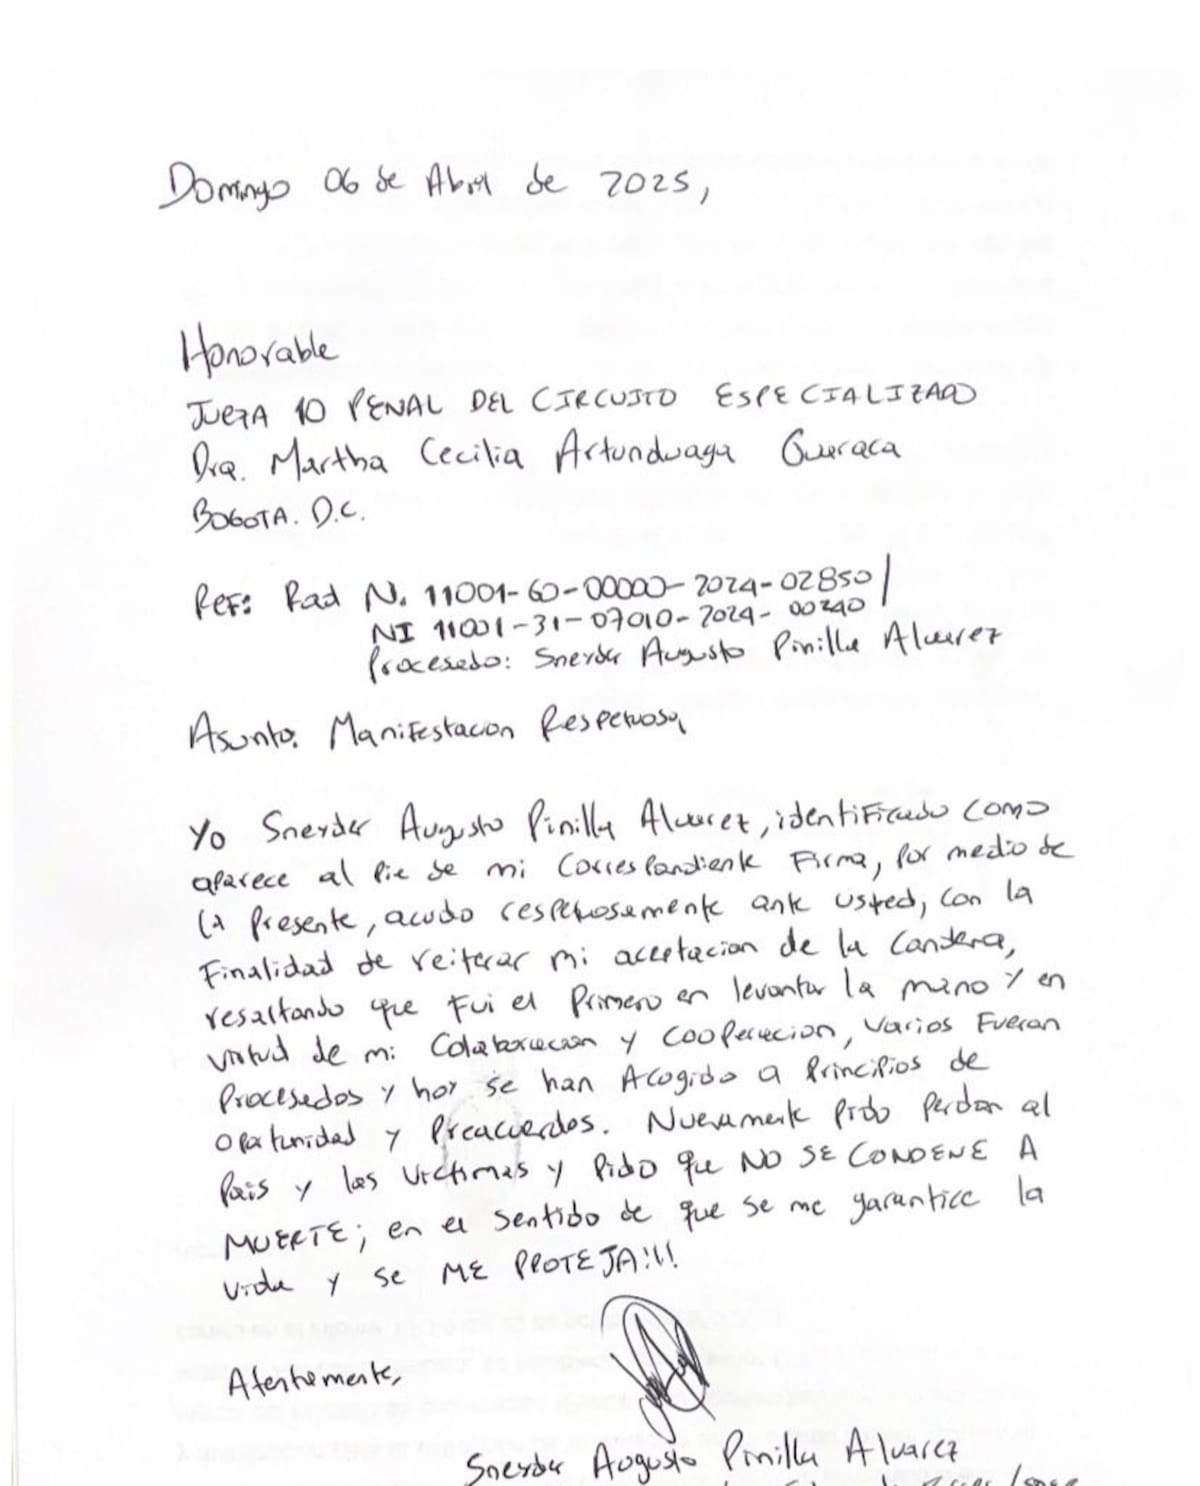 Domingo 06 de Abril de 2025,
Honorable
JUEZA 10 PENAL DEL CIRCUITO ESPECIALIZADO
Dra. Martha Cecilia Artunduaga Guaraca
BOGOTA. D.C.
Ref: Rad N. 11001-60-00000-2024-02850/
NI 11001-31-07010-2024-00240
Procesado: Sneyder Augusto Pinilla Alvarez
Asunto: Manifestacion Respetuosa
Yo Sneyder Augusto Pinilla Alvarez, identificado como
aparece al pie de mi correspondiente Firma, por medio de
la presente, acudo respetuosamente ante usted, con la
Finalidad de reiterar mi aceptacion de la Condena,
resaltando que Fui el Primero en levantar la mano y en
virtud de mi Colaboracion y Cooperacion, varios Fueron
Procesados y hoy se han Acogido a Principios de
Oportunidad y Preacuerdos. Nuevamente pido Perdon al
Pais y las Victimas y Pido que NO SE CONDENE A
MUERTE; en el Sentido de que se me garantice la
vida y se ME PROTEJA!!!
Atentamente,
Sneyder Augusto Pinilla Alvarez